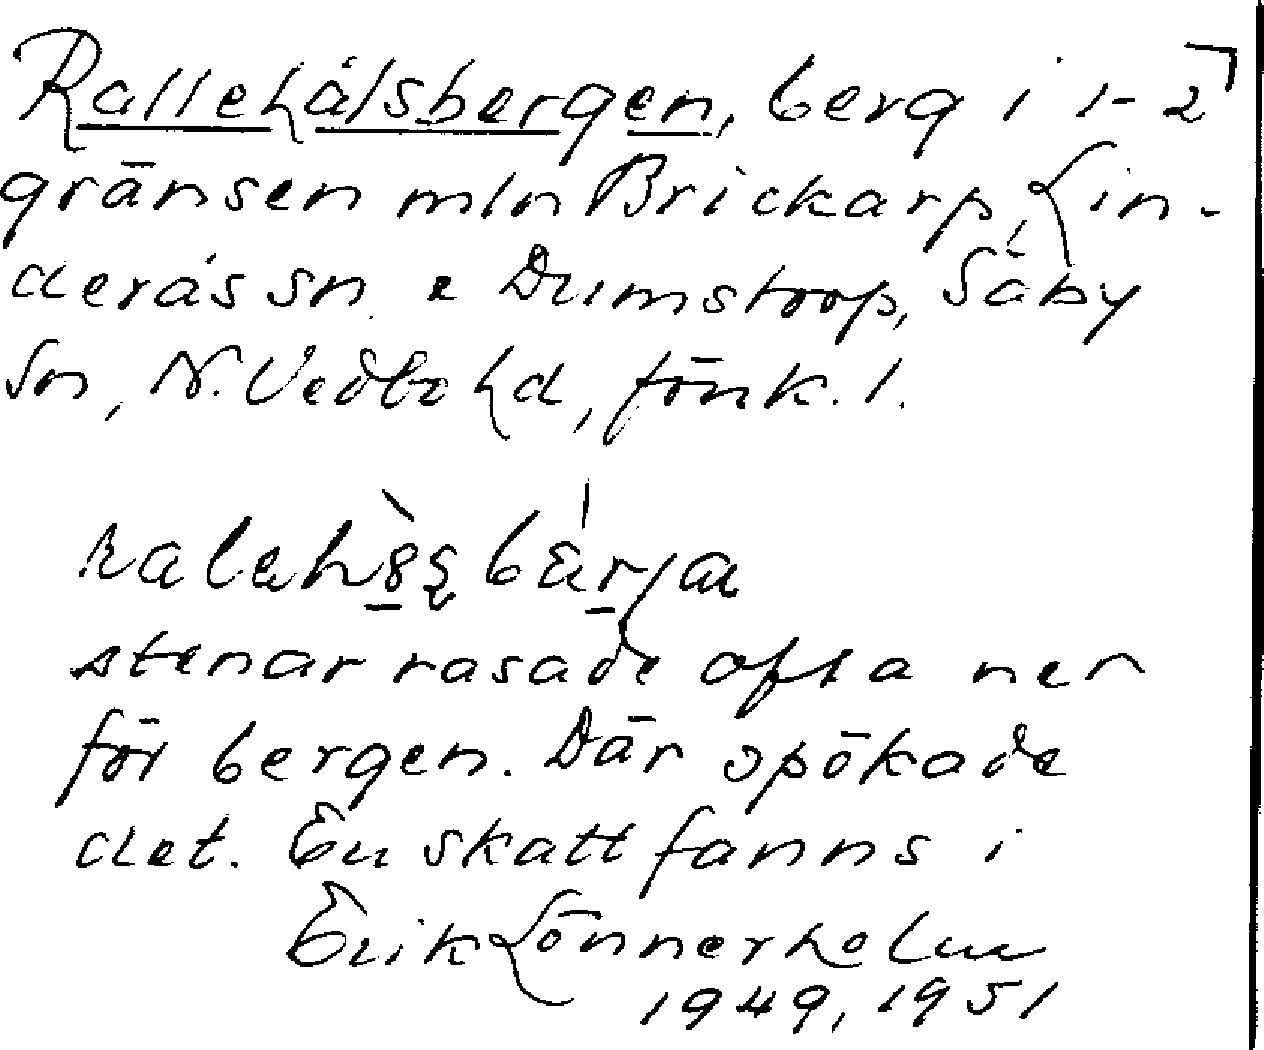 Rallehålsbergen, berg i 1-2
gränsen mln Brickarp, Lin-
derås sn. e Dumstorp, Säby
sn, N. Vedbo hd, Jönk. l.
stenar rasade ofta ner
för bergen. Där spökade
det. En skatt fanns i
Erik Lönnerholm
1949, 1951